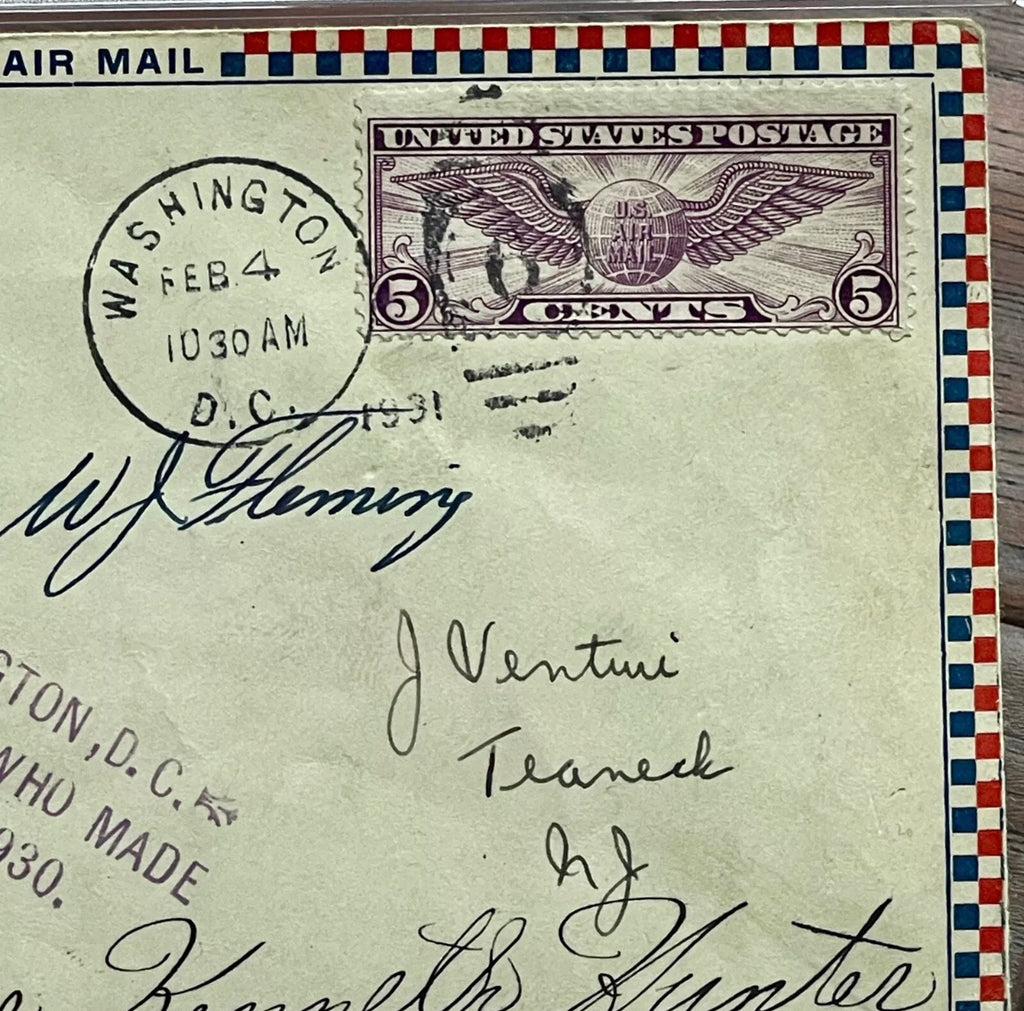 AIR MAIL
UNITED STATES POSTAGE
U.S.
AIR
MAIL
5 CENTS 5
WASHINGTON
FEB 4
10 30 AM
D.C.
1931
W J Fleming
J Venturi
Teaneck
N J
GTON, D.C.
WHO MADE
930.
Kenneth Hunter